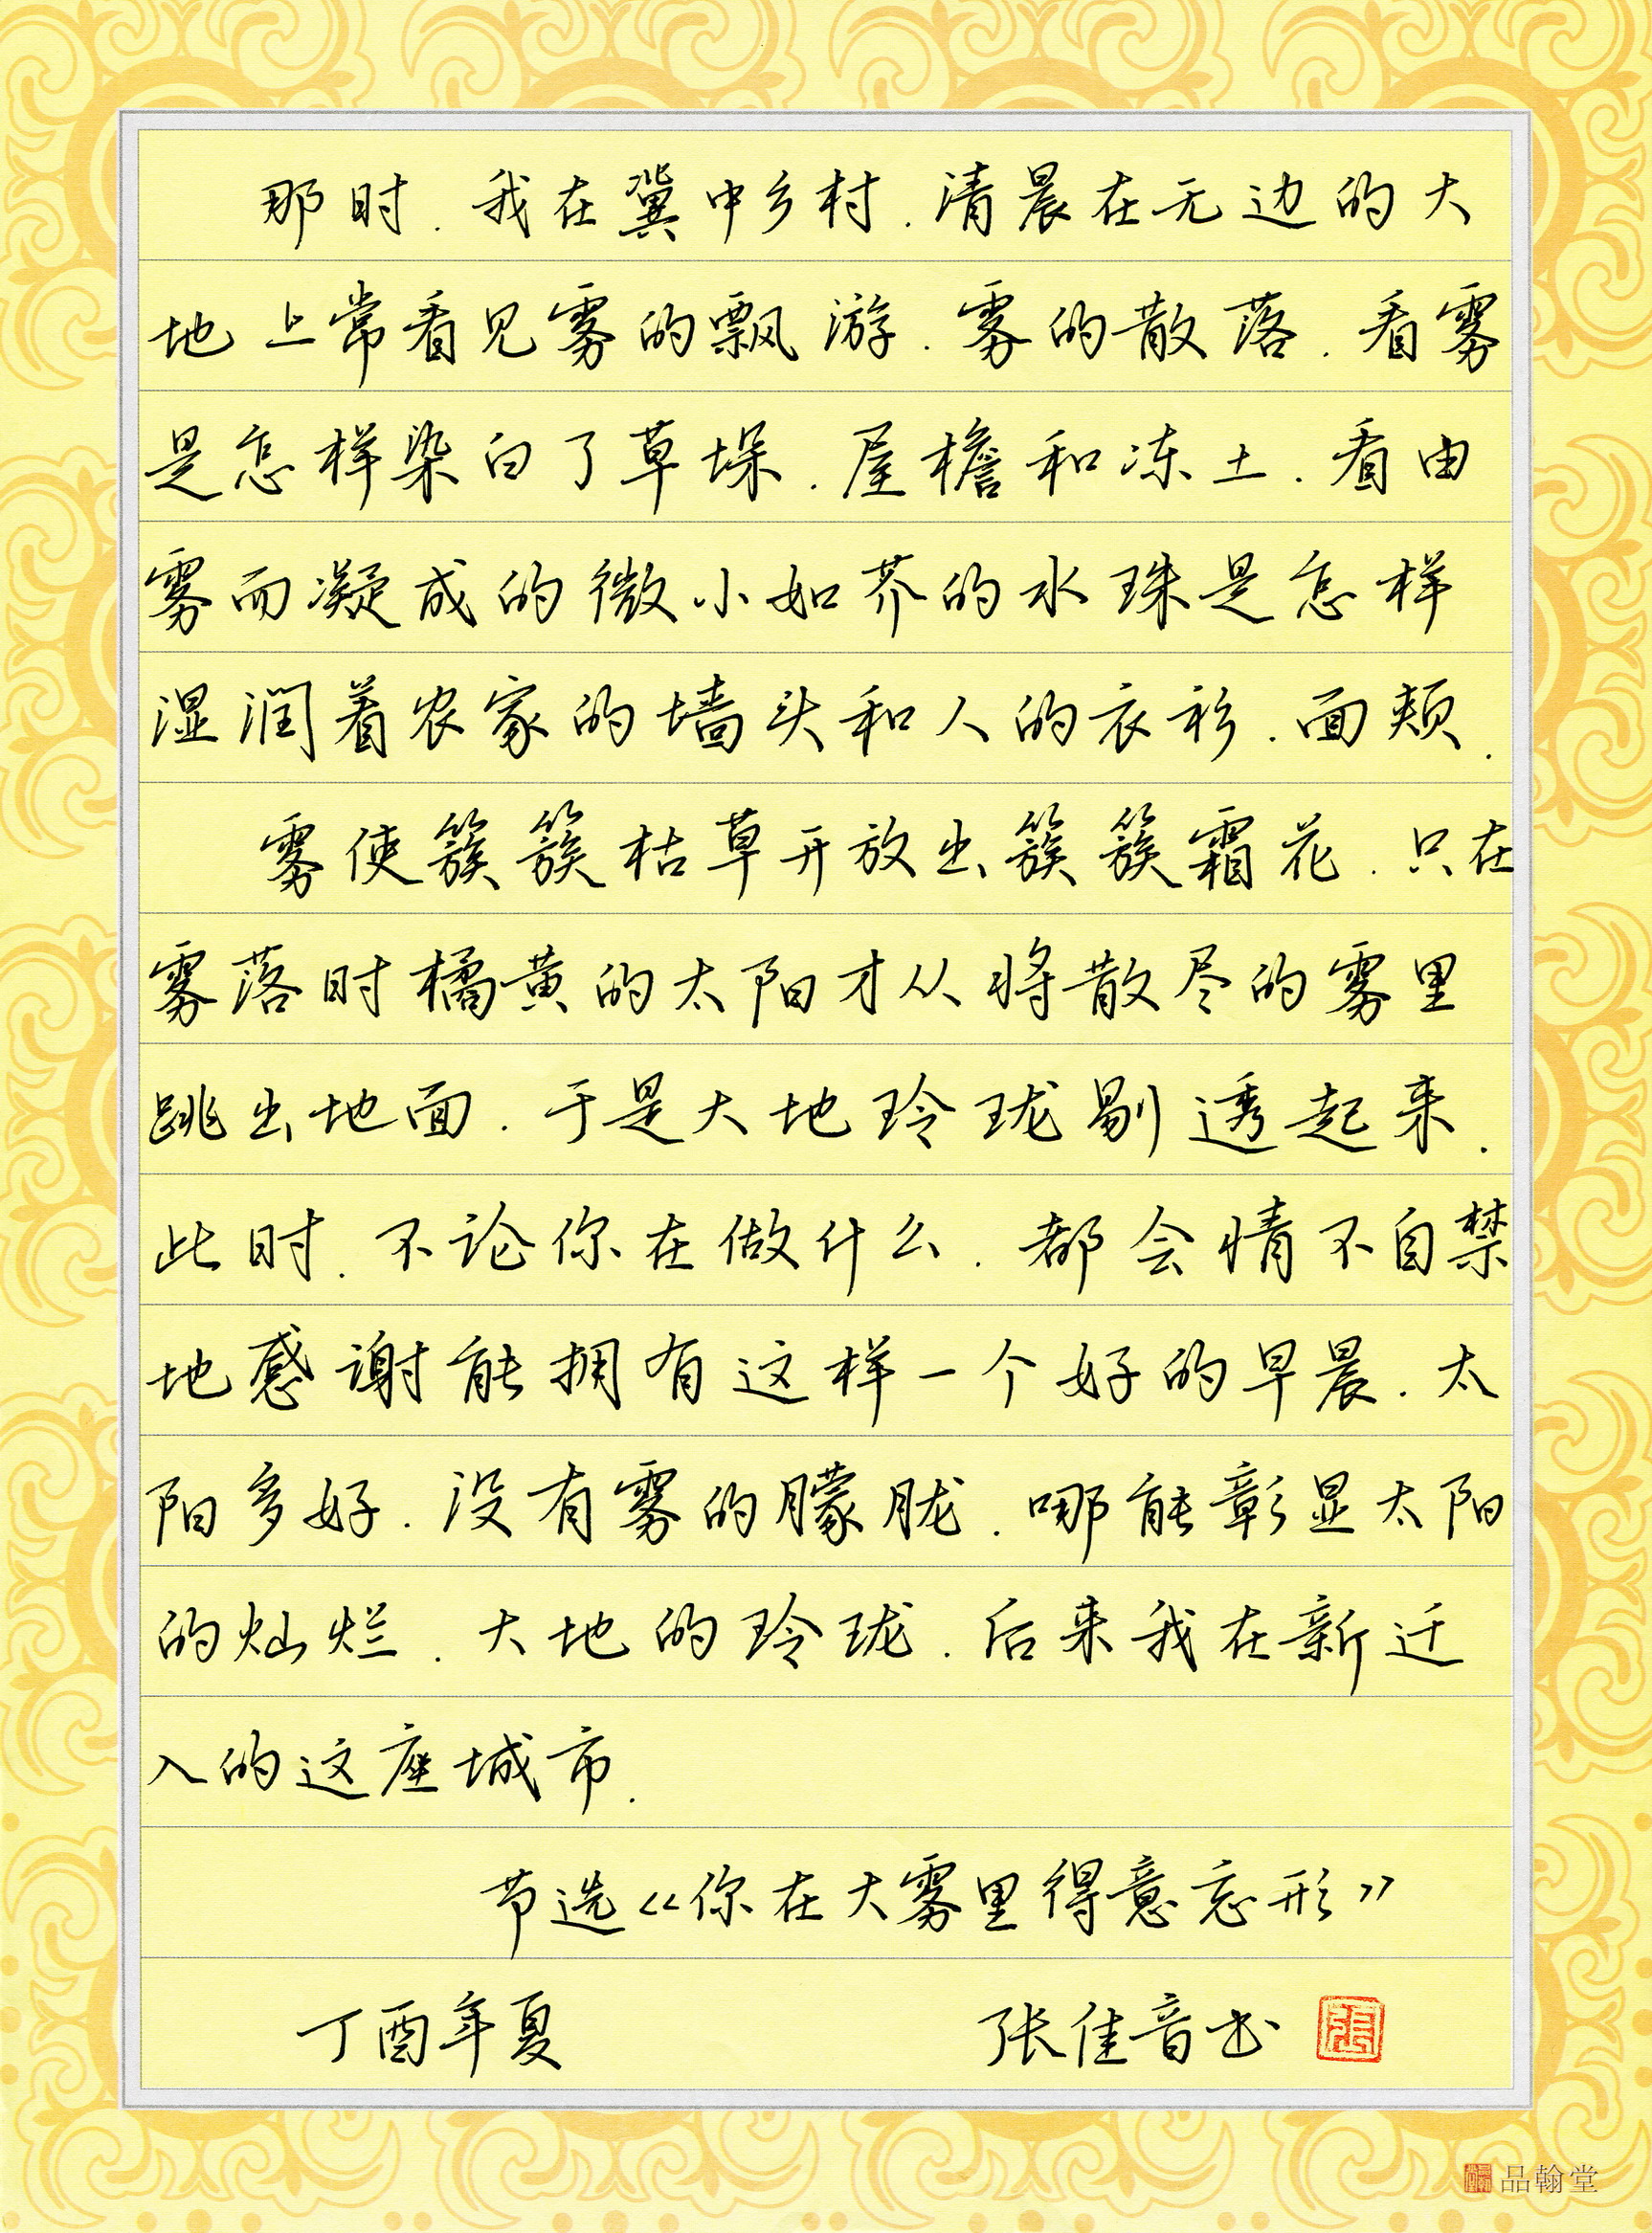 那时.我在冀中乡村.清晨在无边的大
地上常看见雾的飘游.雾的散落.看雾
是怎样染白了草垛.屋檐和冻土.看由
雾而凝成的微小如芥的水珠是怎样
湿润着农家的墙头和人的衣衫.面颊.
雾使簇簇枯草开放出簇簇霜花.只在
雾落时橘黄的太阳才从将散尽的雾里
跳出地面.于是大地玲珑剔透起来.
此时.不论你在做什么.都会情不自禁
地感谢能拥有这样一个好的早晨.太
阳多好.没有雾的朦胧.哪能彰显太阳
的灿烂.大地的玲珑.后来我在新迁
入的这座城市.
节选《你在大雾里得意忘形》
丁酉年夏 张佳音书 张
品翰堂